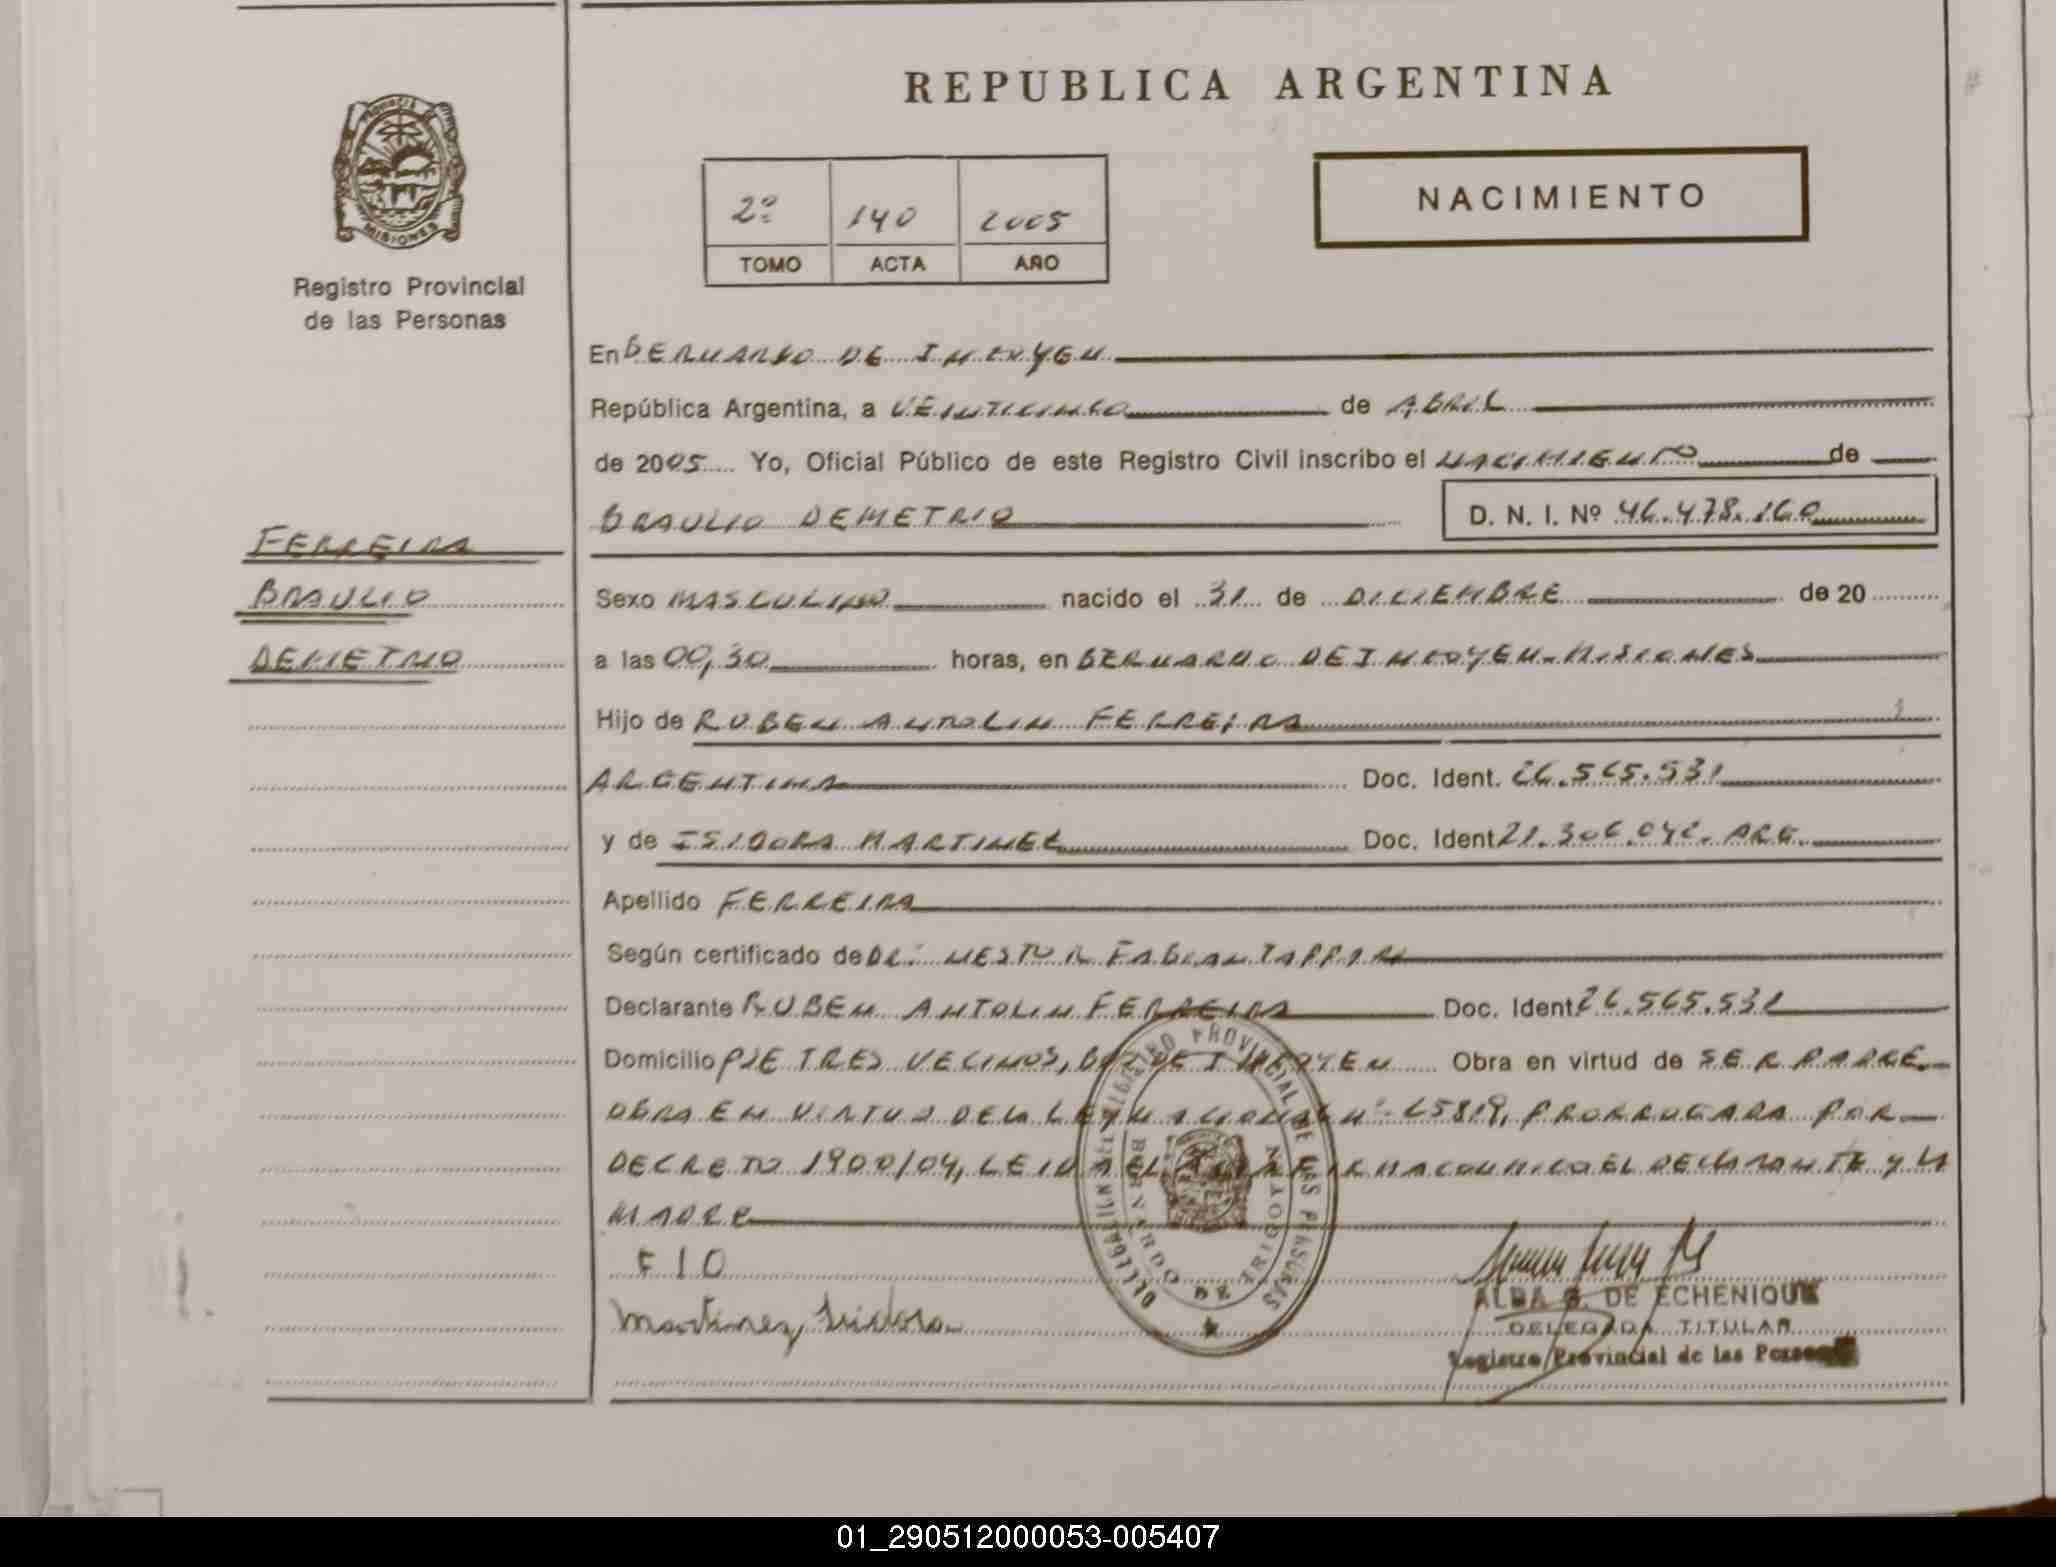 REPUBLICA ARGENTINA
PROVINCIA
MISIONES
Registro Provincial
de las Personas
NACIMIENTO
2º 140 2005
TOMO ACTA AÑO
En BERNARDO DE IRIGOYEN
República Argentina, a VEINTICINCO de ABRIL
de 2005 Yo, Oficial Público de este Registro Civil inscribo el NACIMIENTO de
BRAULIO DEMETRIO D. N. I. Nº 46.478.160
FERREIRA
BRAULIO
DEMETRIO
Sexo MASCULINO nacido el 31 de DICIEMBRE de 20
a las 00,30 horas, en BERNARDO DE IRIGOYEN-MISIONES
Hijo de RUBEN ANTOLIN FERREIRA
ARGENTINA Doc. Ident. 26.565.531
y de ISIDORA MARTINEZ Doc. Ident 21.306.042. ARG.
Apellido FERREIRA
Según certificado de DR. NESTOR FABIAN
Declarante RUBEN ANTOLIN FERREIRA Doc. Ident 26.565.531
Domicilio PJE TRES VECINOS, BDO DE IRIGOYEN Obra en virtud de SER PADRE.
OBRA EN VIRTUD DE LA LEY NACIONAL Nº 25819, PRORROGADA POR
DECRETO 1900/04, LEIDA EL ACTA FIRMA CONMIGO EL DECLARANTE Y LA
MADRE
F I O
Martinez, Isidora
DELEGACION REGISTRO PROVINCIAL DE LAS PERSONAS
BERNARDO DE IRIGOYEN
ALBA G. DE ECHENIQUE
DELEGADA TITULAR
Registro Provincial de las Personas
01_290512000053-005407